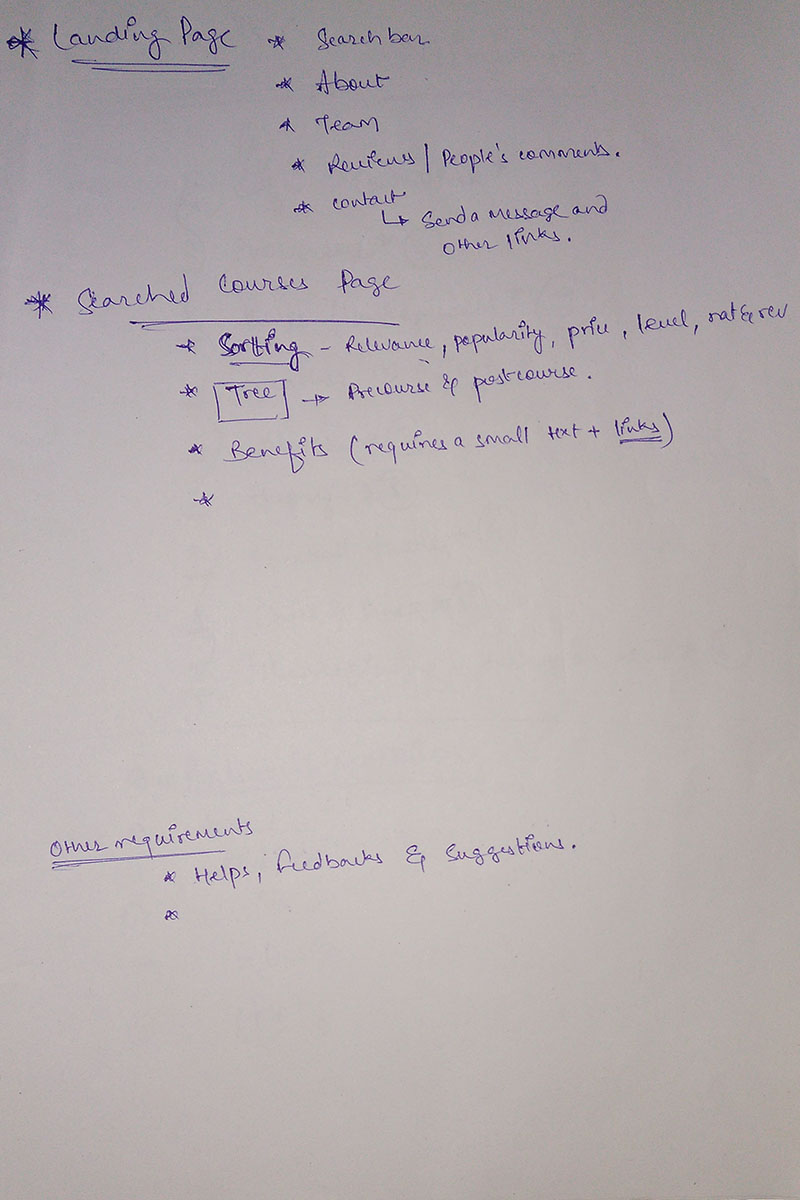 * Landing Page * Search bar
* About
* Team
* Reviews | People's comments.
* contact
↳ Send a message and
other links.
* Searched Courses Page
* Sortting - Relevance, popularity, price, level, rat & rev
* Tree → Precourse & postcourse.
* Benefits (requires a small text + links)
*
Other requirements
* Helps, feedbacks & suggestions.
*